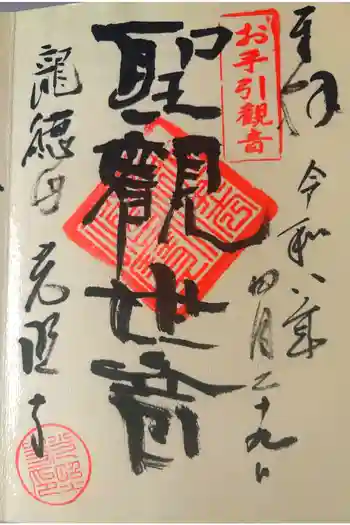 奉拝
令和八年
四月二十九日
お手引観音
聖観世音
龍徳山 光照寺